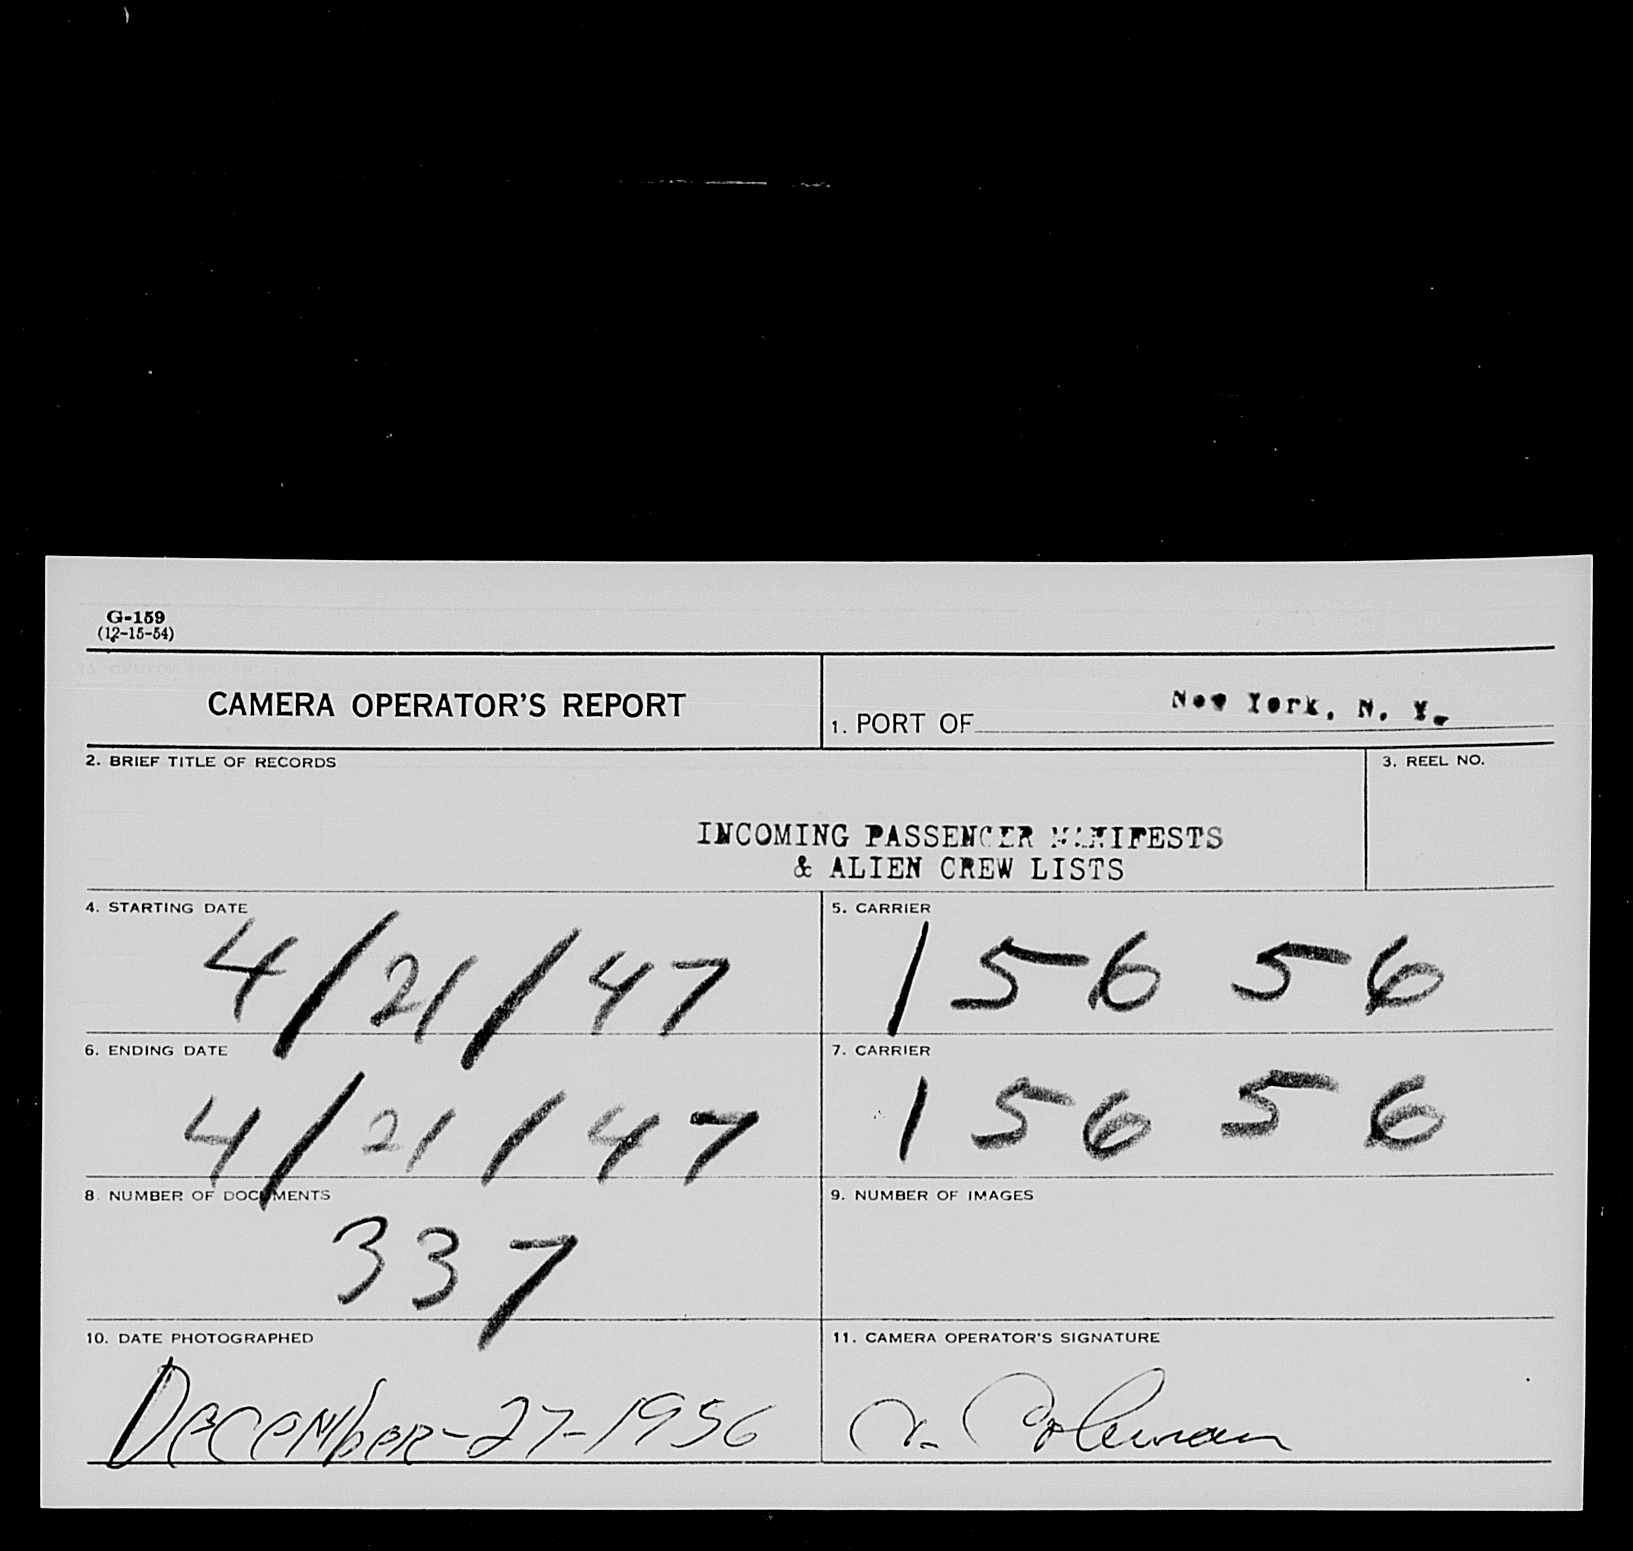 G-159
(12-15-54)
CAMERA OPERATOR'S REPORT
1. PORT OF New York, N. Y.
2. BRIEF TITLE OF RECORDS
3. REEL NO.
INCOMING PASSENGER MANIFESTS
& ALIEN CREW LISTS
4. STARTING DATE
4/21/47
5. CARRIER
15656
6. ENDING DATE
4/21/47
7. CARRIER
15656
8. NUMBER OF DOCUMENTS
337
9. NUMBER OF IMAGES
10. DATE PHOTOGRAPHED
DECEMBER-27-1956
11. CAMERA OPERATOR'S SIGNATURE
Coleman